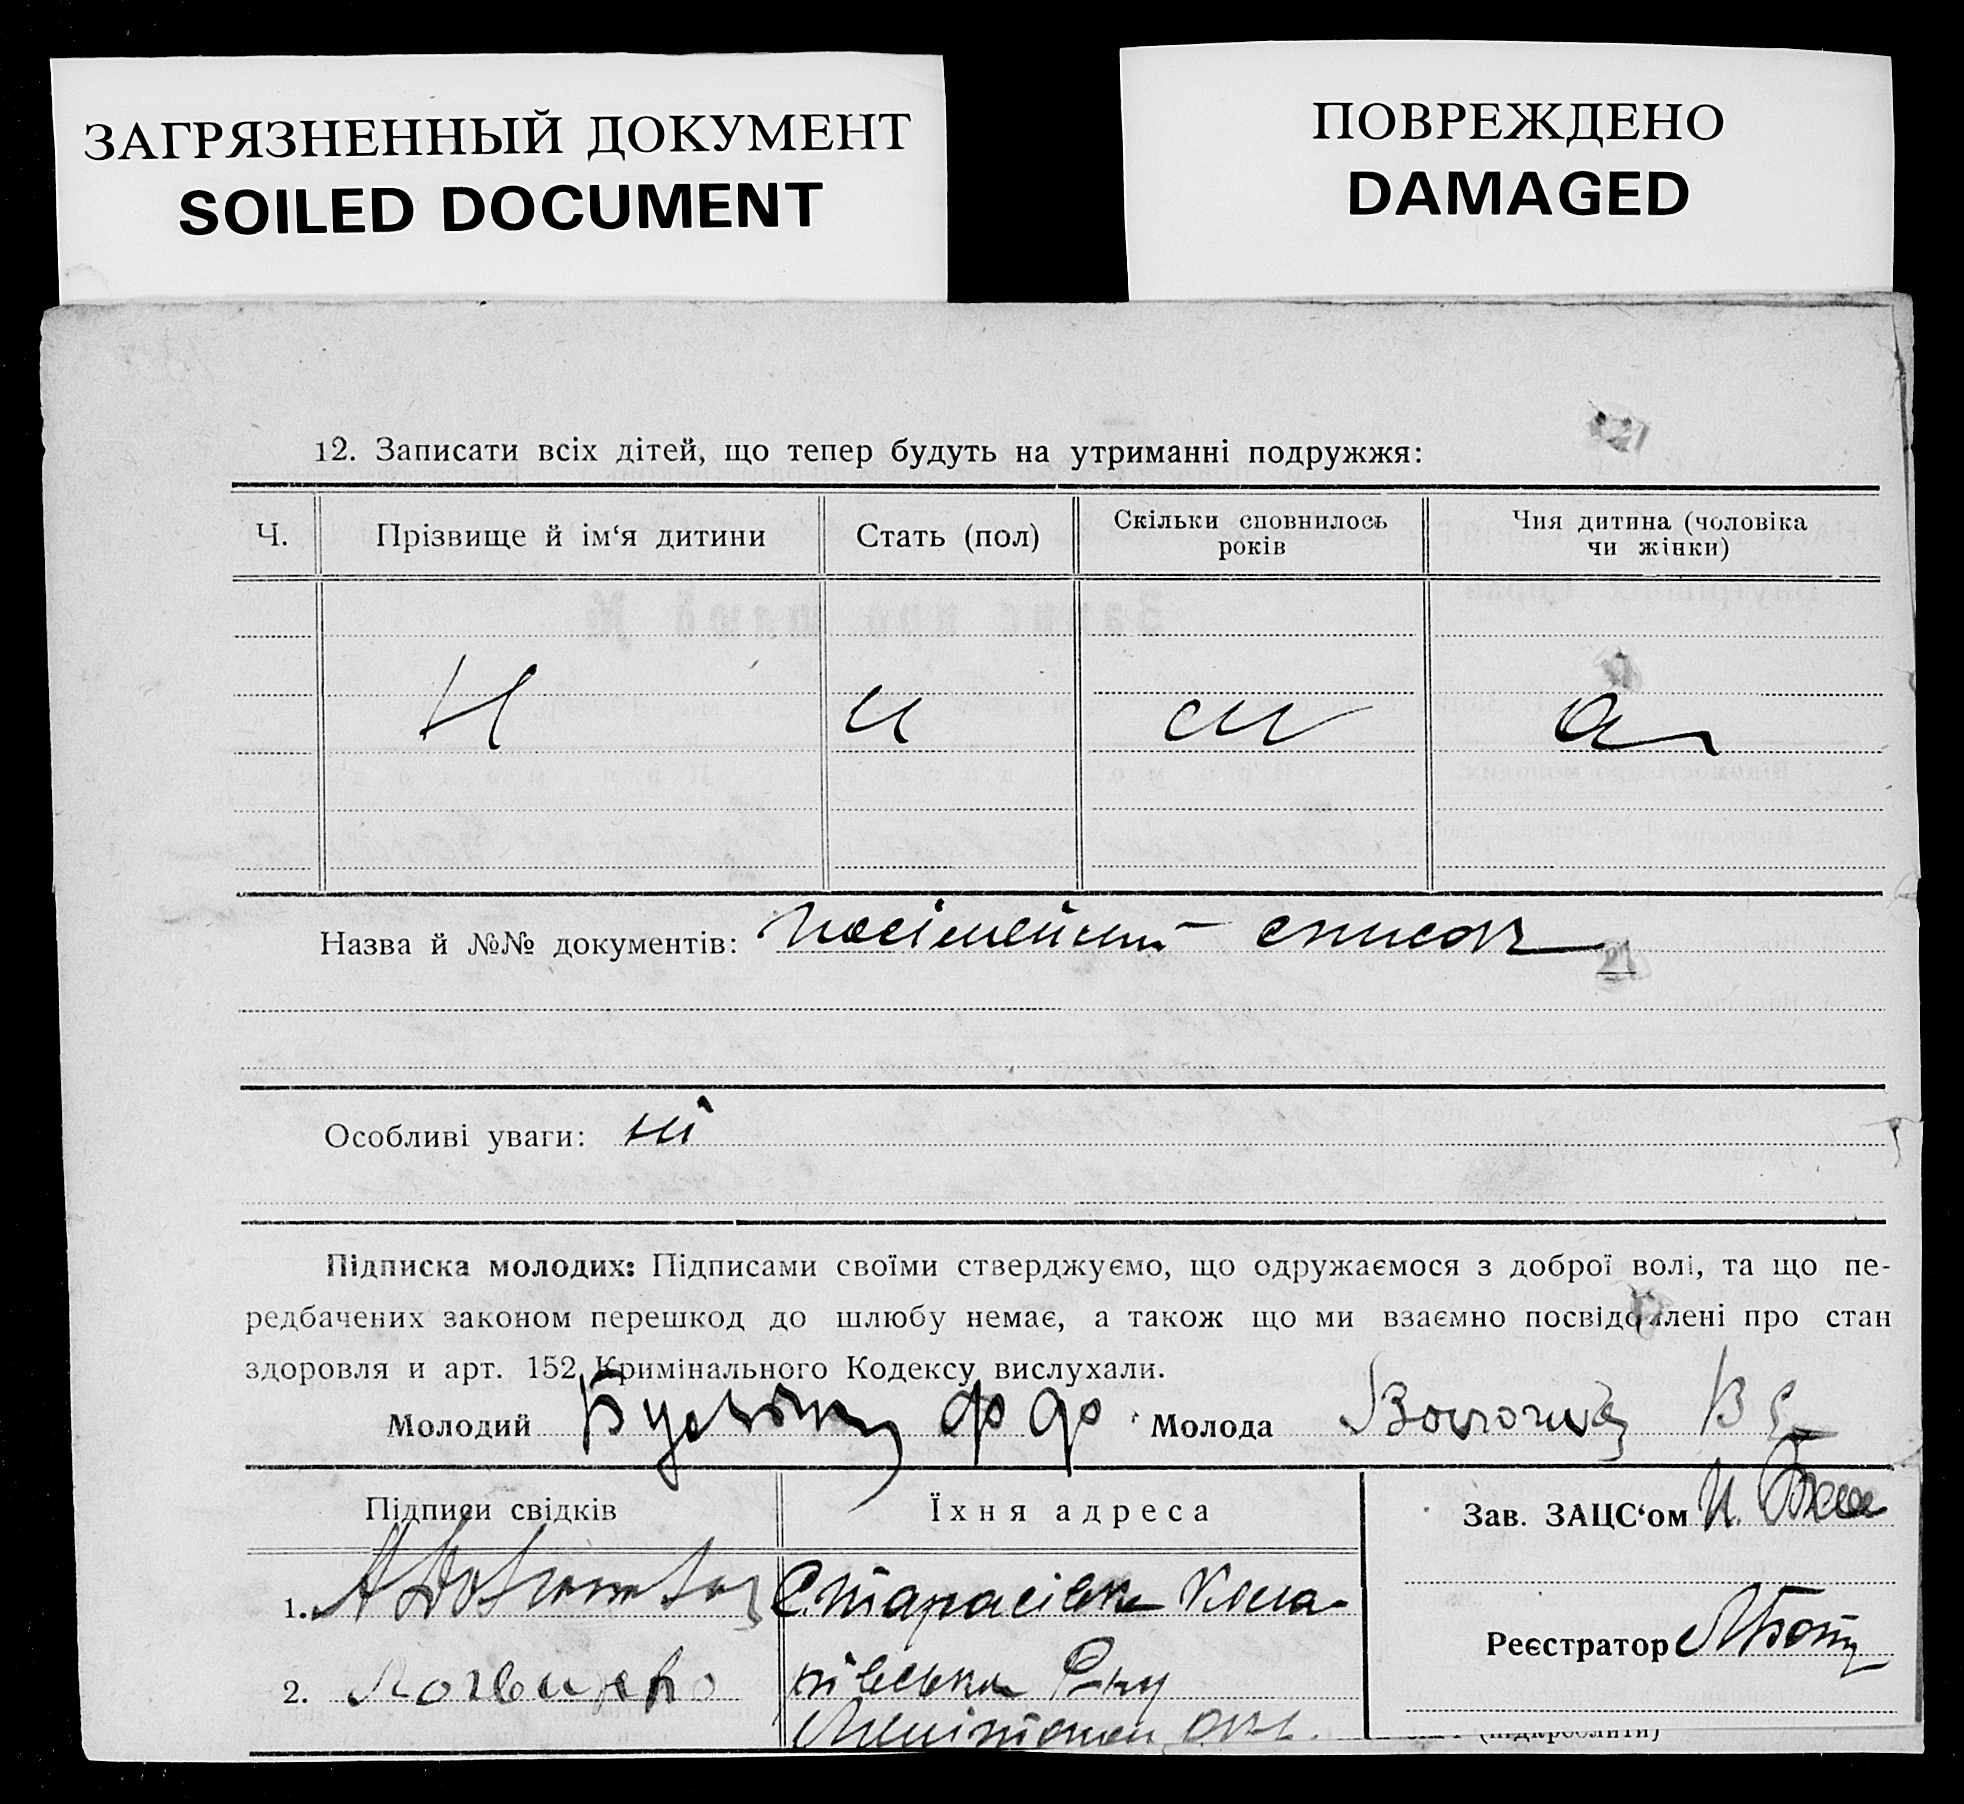 ЗАГРЯЗНЕННЫЙ ДОКУМЕНТ
SOILED DOCUMENT
ПОВРЕЖДЕНО
DAMAGED
12. Записати всіх дітей, що тепер будуть на утриманні подружжя:
Ч. Прізвище й ім‘я дитини Стать (пол) Скільки сповнилось років Чия дитина (чоловіка чи жінки)
Назва й №№ документів: посімейний список
21
Особливі уваги: ні
Підписка молодих: Підписами своїми стверджуємо, що одружаємося з доброї волі, та що пе-
редбачених законом перешкод до шлюбу немає, а також що ми взаємно посвідомлені про стан
здоровля и арт. 152 Кримінального Кодексу вислухали.
Молодий Молода
Підписи свідків Їхня адреса Зав. ЗАЦС‘ом
1.
Реєстратор
2.
(підкреслити)